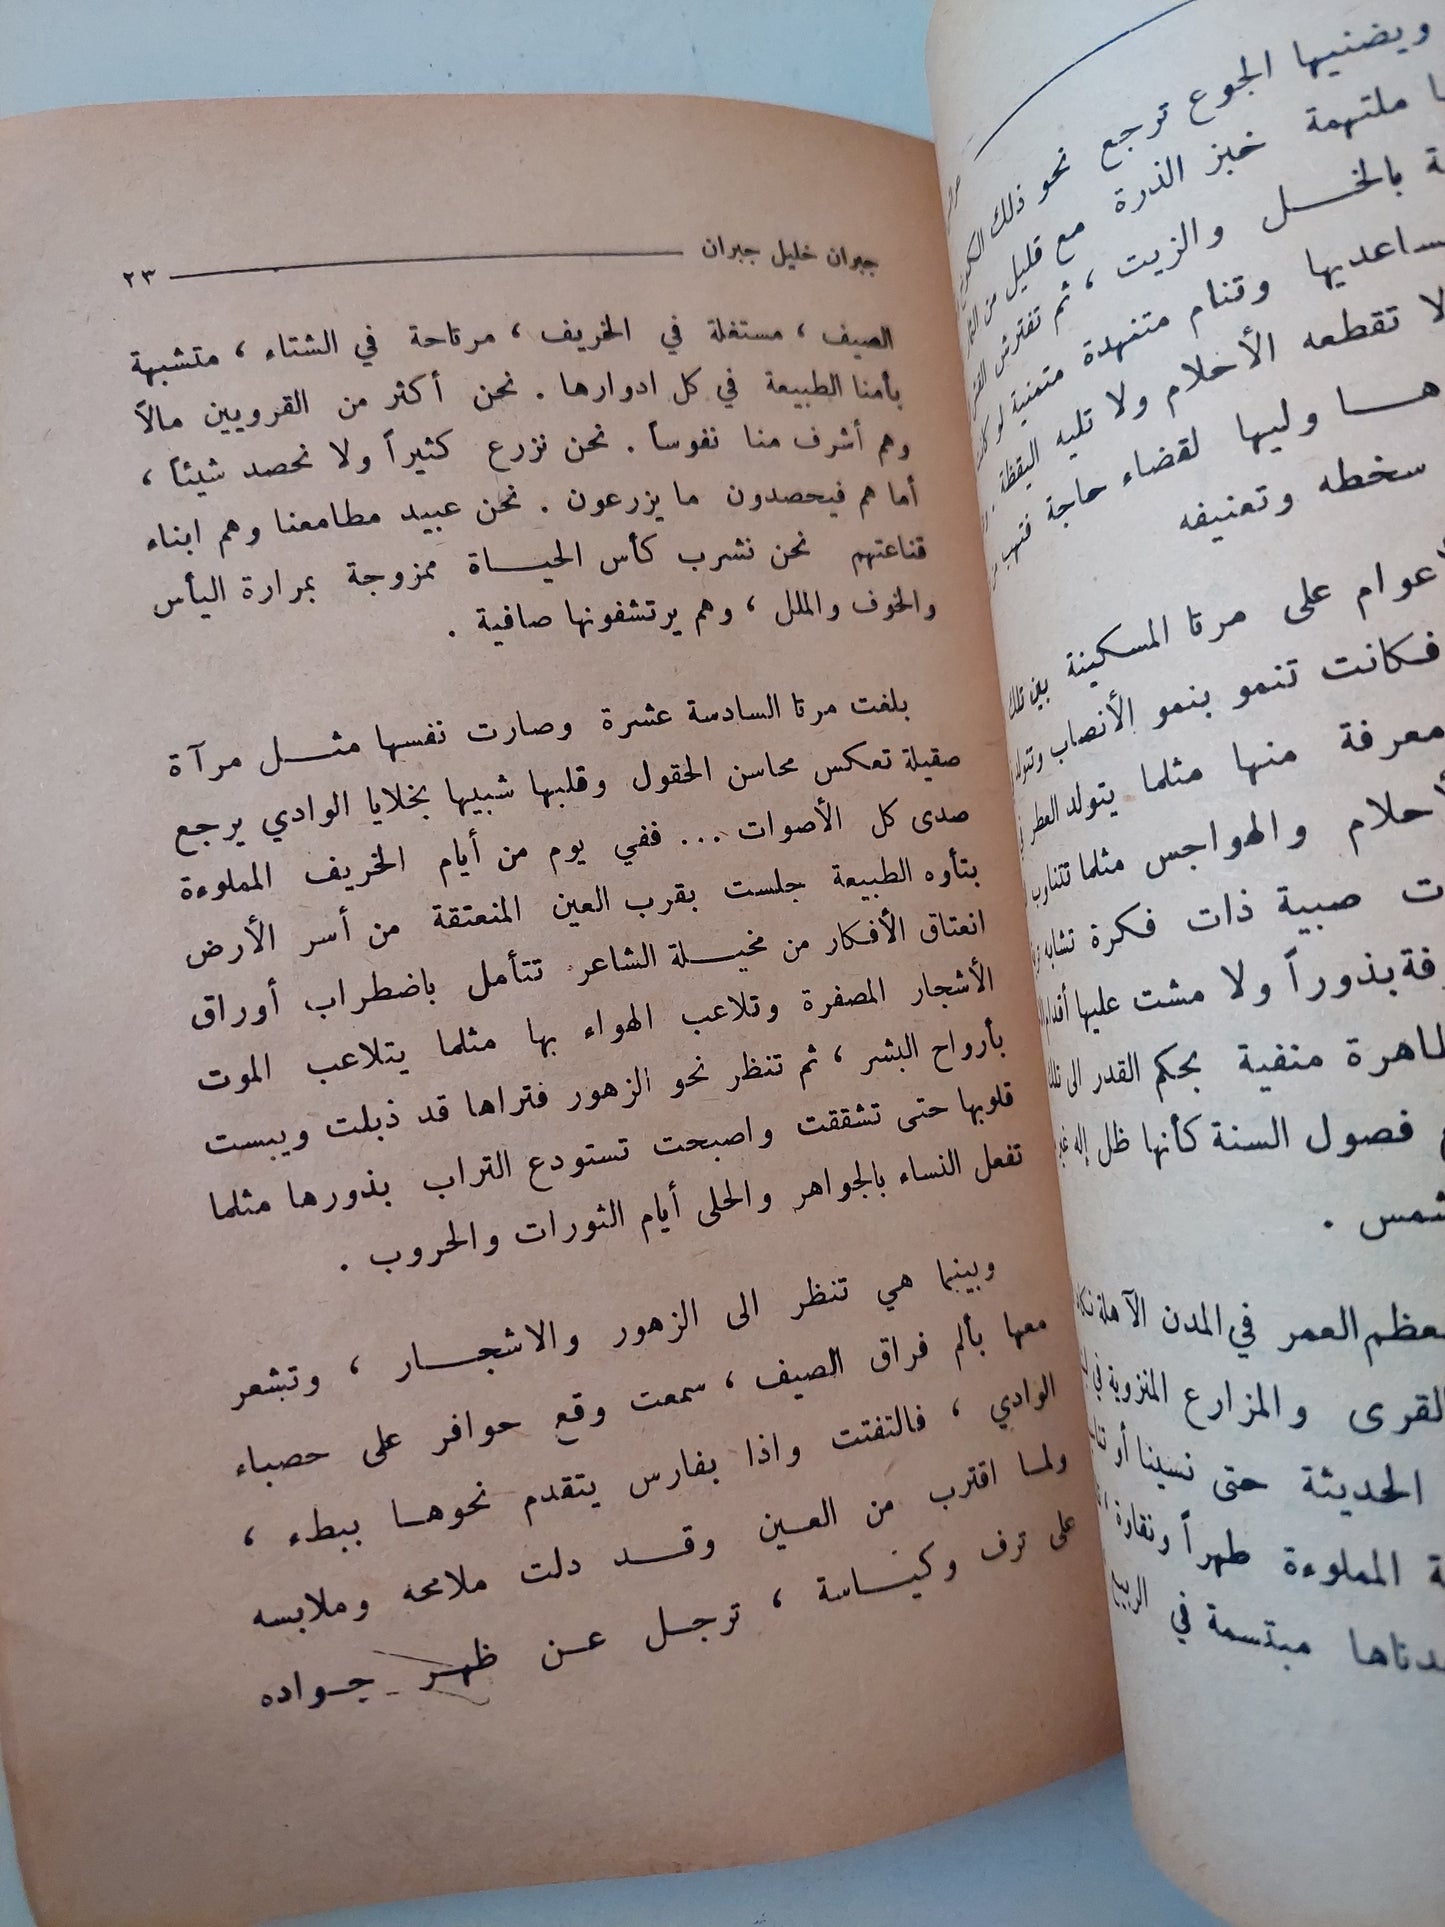 ويضنيها الجوع ترجع نحو ذلك
ملتهمة خبز الذرة مع قليل من
بالخل والزيت ، ثم تفترش
ساعديها وتنام متنهدة متمنية لو كانت
لا تقطعه الأحلام ولا تليه اليقظة
هـا وليها لقضاء حاجة فتهب
سخطه وتعنيفه
أعوام على مرتا المسكينة بين تلك
فكانت تنمو بنمو الأنصاب وتتولد
معرفة منها مثلما يتولد العطر في
أحلام والهواجس مثلما تتناوب
ت صبية ذات فكرة تشابه
بذوراً ولا مشت عليها أقدام
طاهرة منفية بحكم القدر الى تلك
فصول السنة كأنها ظل إله غير
شمس .
معظم العمر في المدن الآهلة نكاد
القرى والمزارع المنزوية في
الحديثة حتى نسينا أو
المملوءة طهراً ونقاوة
مبتسمة في الربيع
جبران خليل جبران ٢٣
الصيف ، مستغلة في الخريف ، مرتاحة في الشتاء ، متشبهة
بأمنا الطبيعة في كل ادوارها . نحن أكثر من القرويين مالاً
وهم أشرف منا نفوساً . نحن نزرع كثيراً ولا نحصد شيئاً ،
أما هم فيحصدون ما يزرعون . نحن عبيد مطامعنا وهم ابناء
قناعتهم نحن نشرب كأس الحيـاة ممزوجة بمرارة اليأس
والخوف والملل ، وهم يرتشفونها صافية .
بلغت مرتا السادسة عشرة وصارت نفسها مثـل مرآة
صقيلة تعكس محاسن الحقول وقلبها شبيها بخلايا الوادي يرجع
صدى كل الأصوات ... ففي يوم من أيام الخريف المملوءة
بتأوه الطبيعة جلست بقرب العين المنعتقة من أسر الأرض
انعتاق الأفكار من مخيـلة الشاعر تتأمل باضطراب أوراق
الأشجار المصفرة وتلاعب الهواء بها مثلما يتلاعب الموت
بأرواح البشر ، ثم تنظر نحو الزهور فتراها قد ذبلت ويبست
قلوبها حتى تشققت واصبحت تستودع التراب بذورها مثلما
تفعل النساء بالجواهر والحلى أيام الثورات والحروب .
وبينما هي تنظر الى الزهور والاشجـار ، وتشعر
معها بألم فراق الصيف ، سمعت وقع حوافر على حصباء
الوادي ، فالتفتت واذا بفارس يتقدم نحوهـا ببطء ،
ولمـا اقترب من العـين وقـد دلت ملامحه وملابسه
على ترف وكيـاسة ، ترجـل عـن ظهـر جـواده